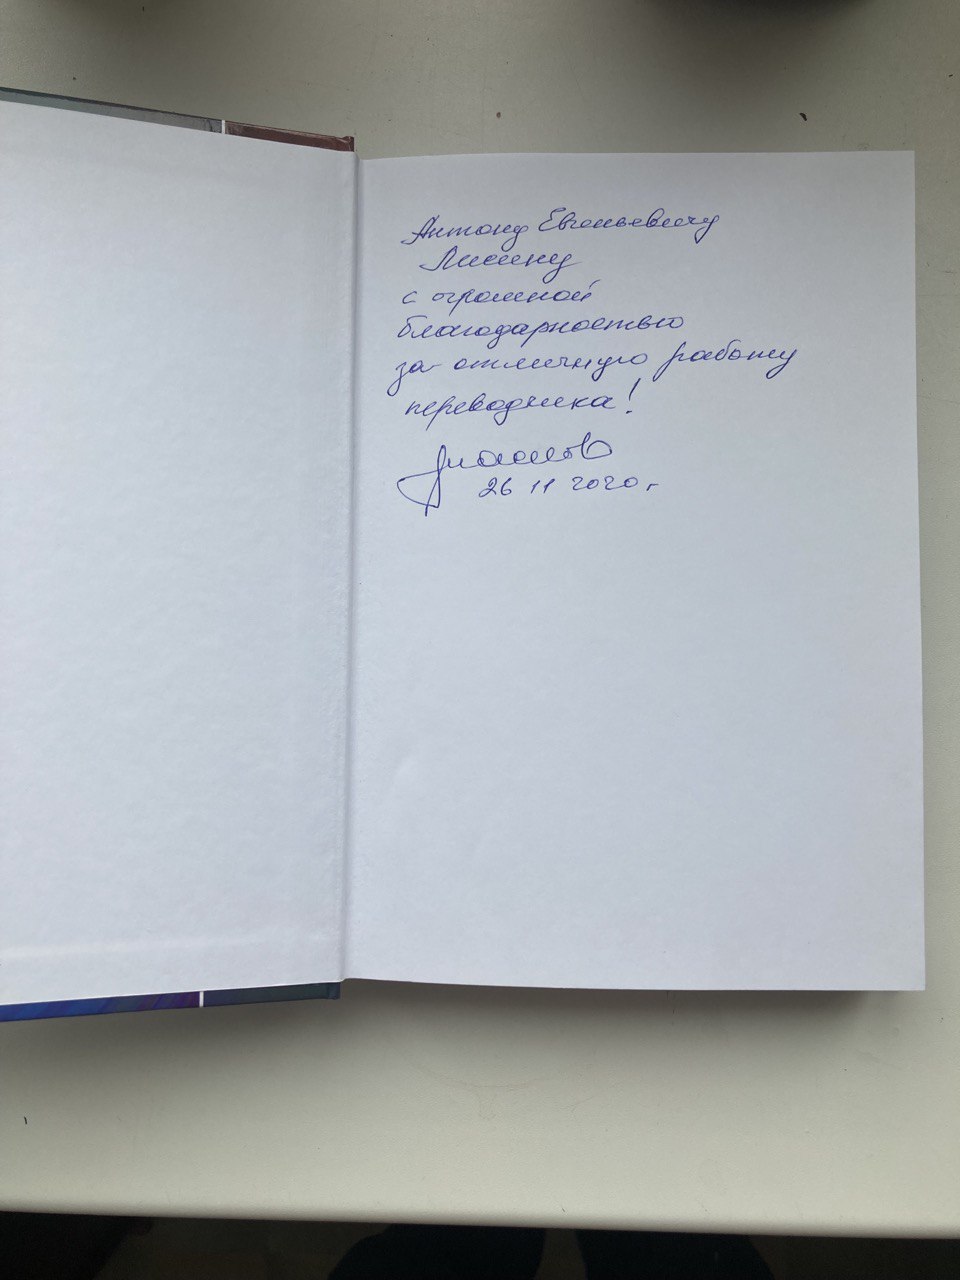 Антону Евгеньевичу
Лисину
с огромной
благодарностью
за отличную работу
переводчика!
26 11 2020 г